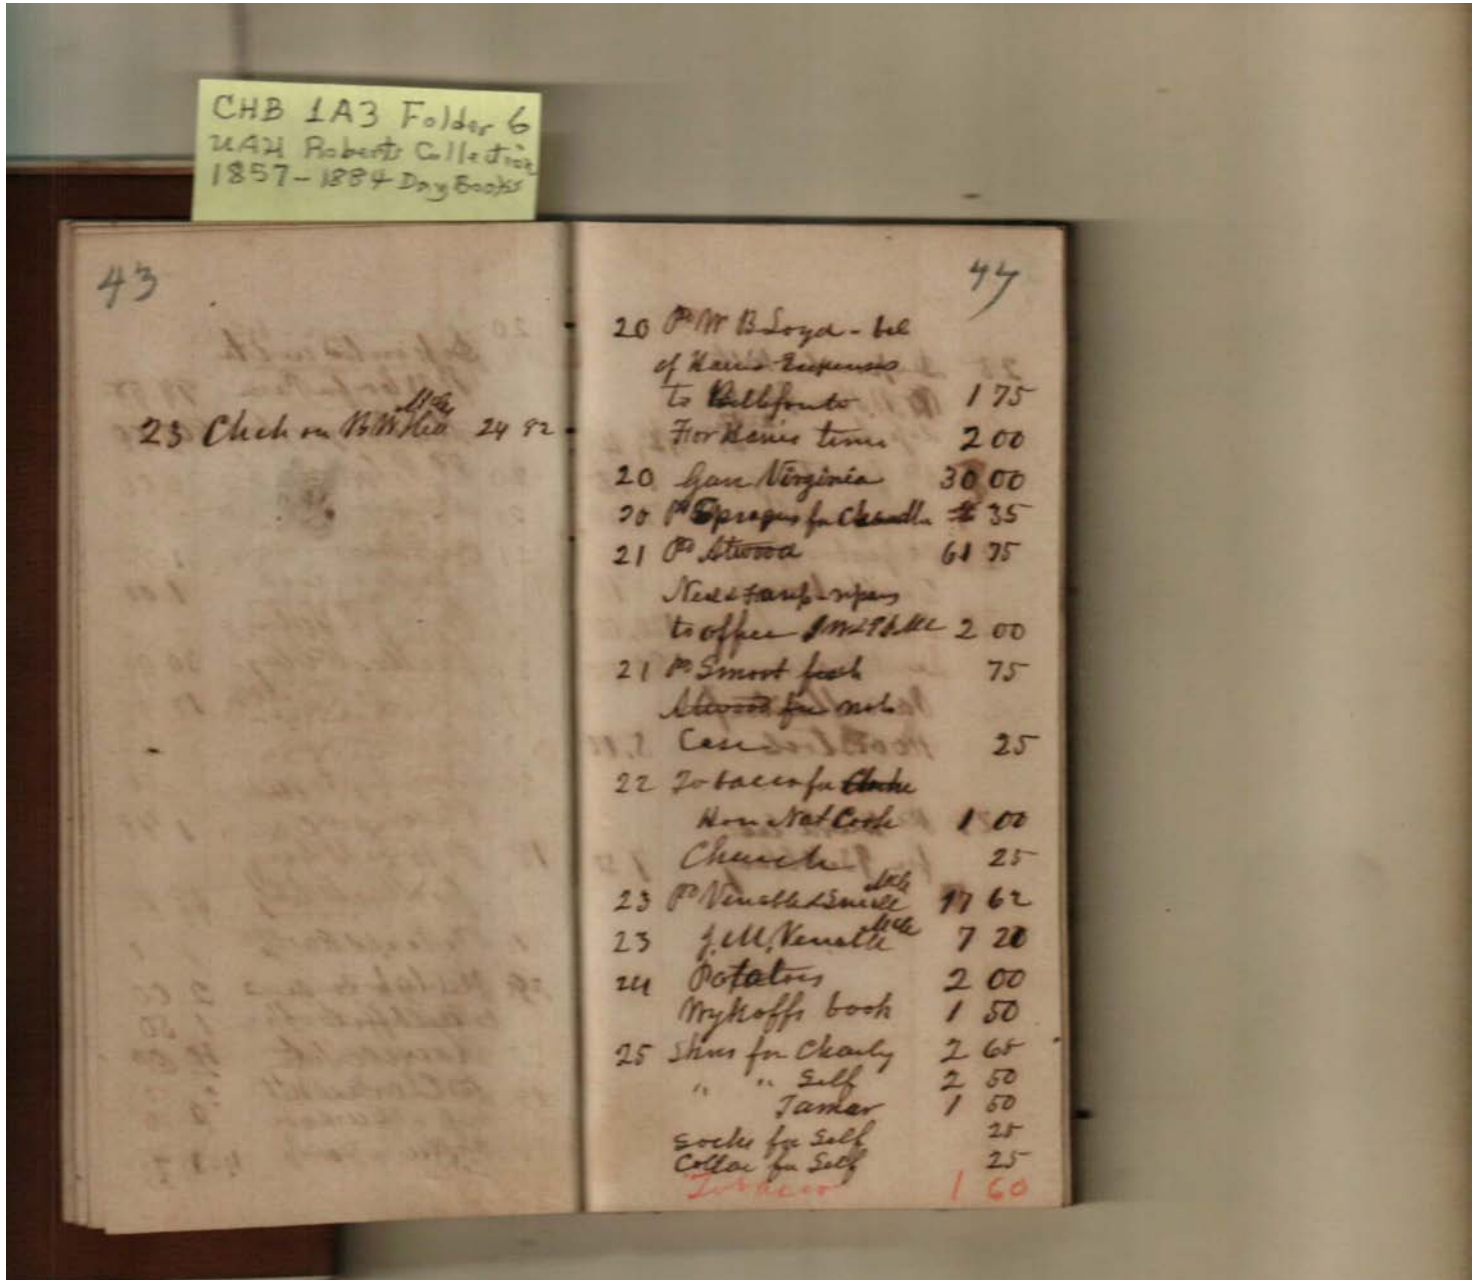 CHB 1A3 Folder 6
UAH Roberts Collection
1857-1884 Day Books
43
23 Check on 24 92
47
20 Pd W B Loyd - bal
of Expenses
to Bellfonte 1 75
For time 2 00
20 Gave Virginia 30 00
20 Pd Spragus for 35
21 Pd Atwood 61 75
to office 2 00
21 Pd Smoot 75
Atwood for
Case 25
22 Tobacco for
Nat Cook 1 00
Church 25
23 Pd Venable & 17 62
23 J. M. Venable 7 20
24 Potatoes 2 00
Wykoffs book 1 50
25 Shoes for Charly 2 65
" " Self 2 50
Tamar 1 50
Socks for Self 25
Collar for Self 25
Tobacco 1 60